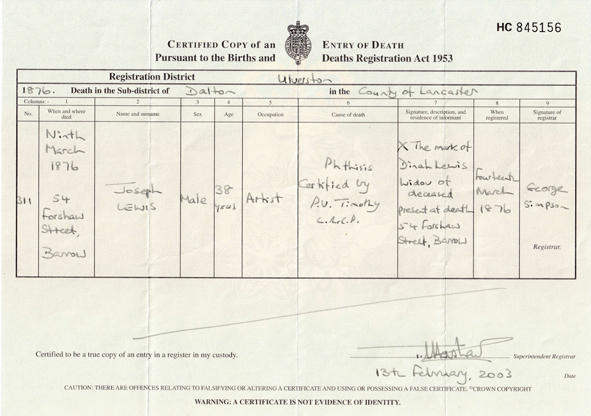 HC 845156
CERTIFIED COPY OF AN ENTRY OF DEATH
Pursuant to the Births and Deaths Registration Act 1953
Registration District Ulverston
1876. Death in the Sub-district of Dalton in the County of Lancaster
Columns:- 1 2 3 4 5 6 7 8 9
No. When and where died Name and surname Sex Age Occupation Cause of death Signature, description, and residence of informant When registered Signature of registrar
311
Ninth
March
1876
54
Forshaw
Street,
Barrow
Joseph
LEWIS
Male
38
years
Artist
Phthisis
Certified by
P.V. Timothy
L.R.C.P.
X The mark of
Dinah Lewis
Widow of
deceased
present at death
54 Forshaw
Street, Barrow
Fourteenth
March
1876
George
Simpson
Registrar.
Certified to be a true copy of an entry in a register in my custody.
Superintendent Registrar
13th February, 2003
CAUTION: THERE ARE OFFENCES RELATING TO FALSIFYING OR ALTERING A CERTIFICATE AND USING OR POSSESSING A FALSE CERTIFICATE. ©CROWN COPYRIGHT
WARNING: A CERTIFICATE IS NOT EVIDENCE OF IDENTITY.